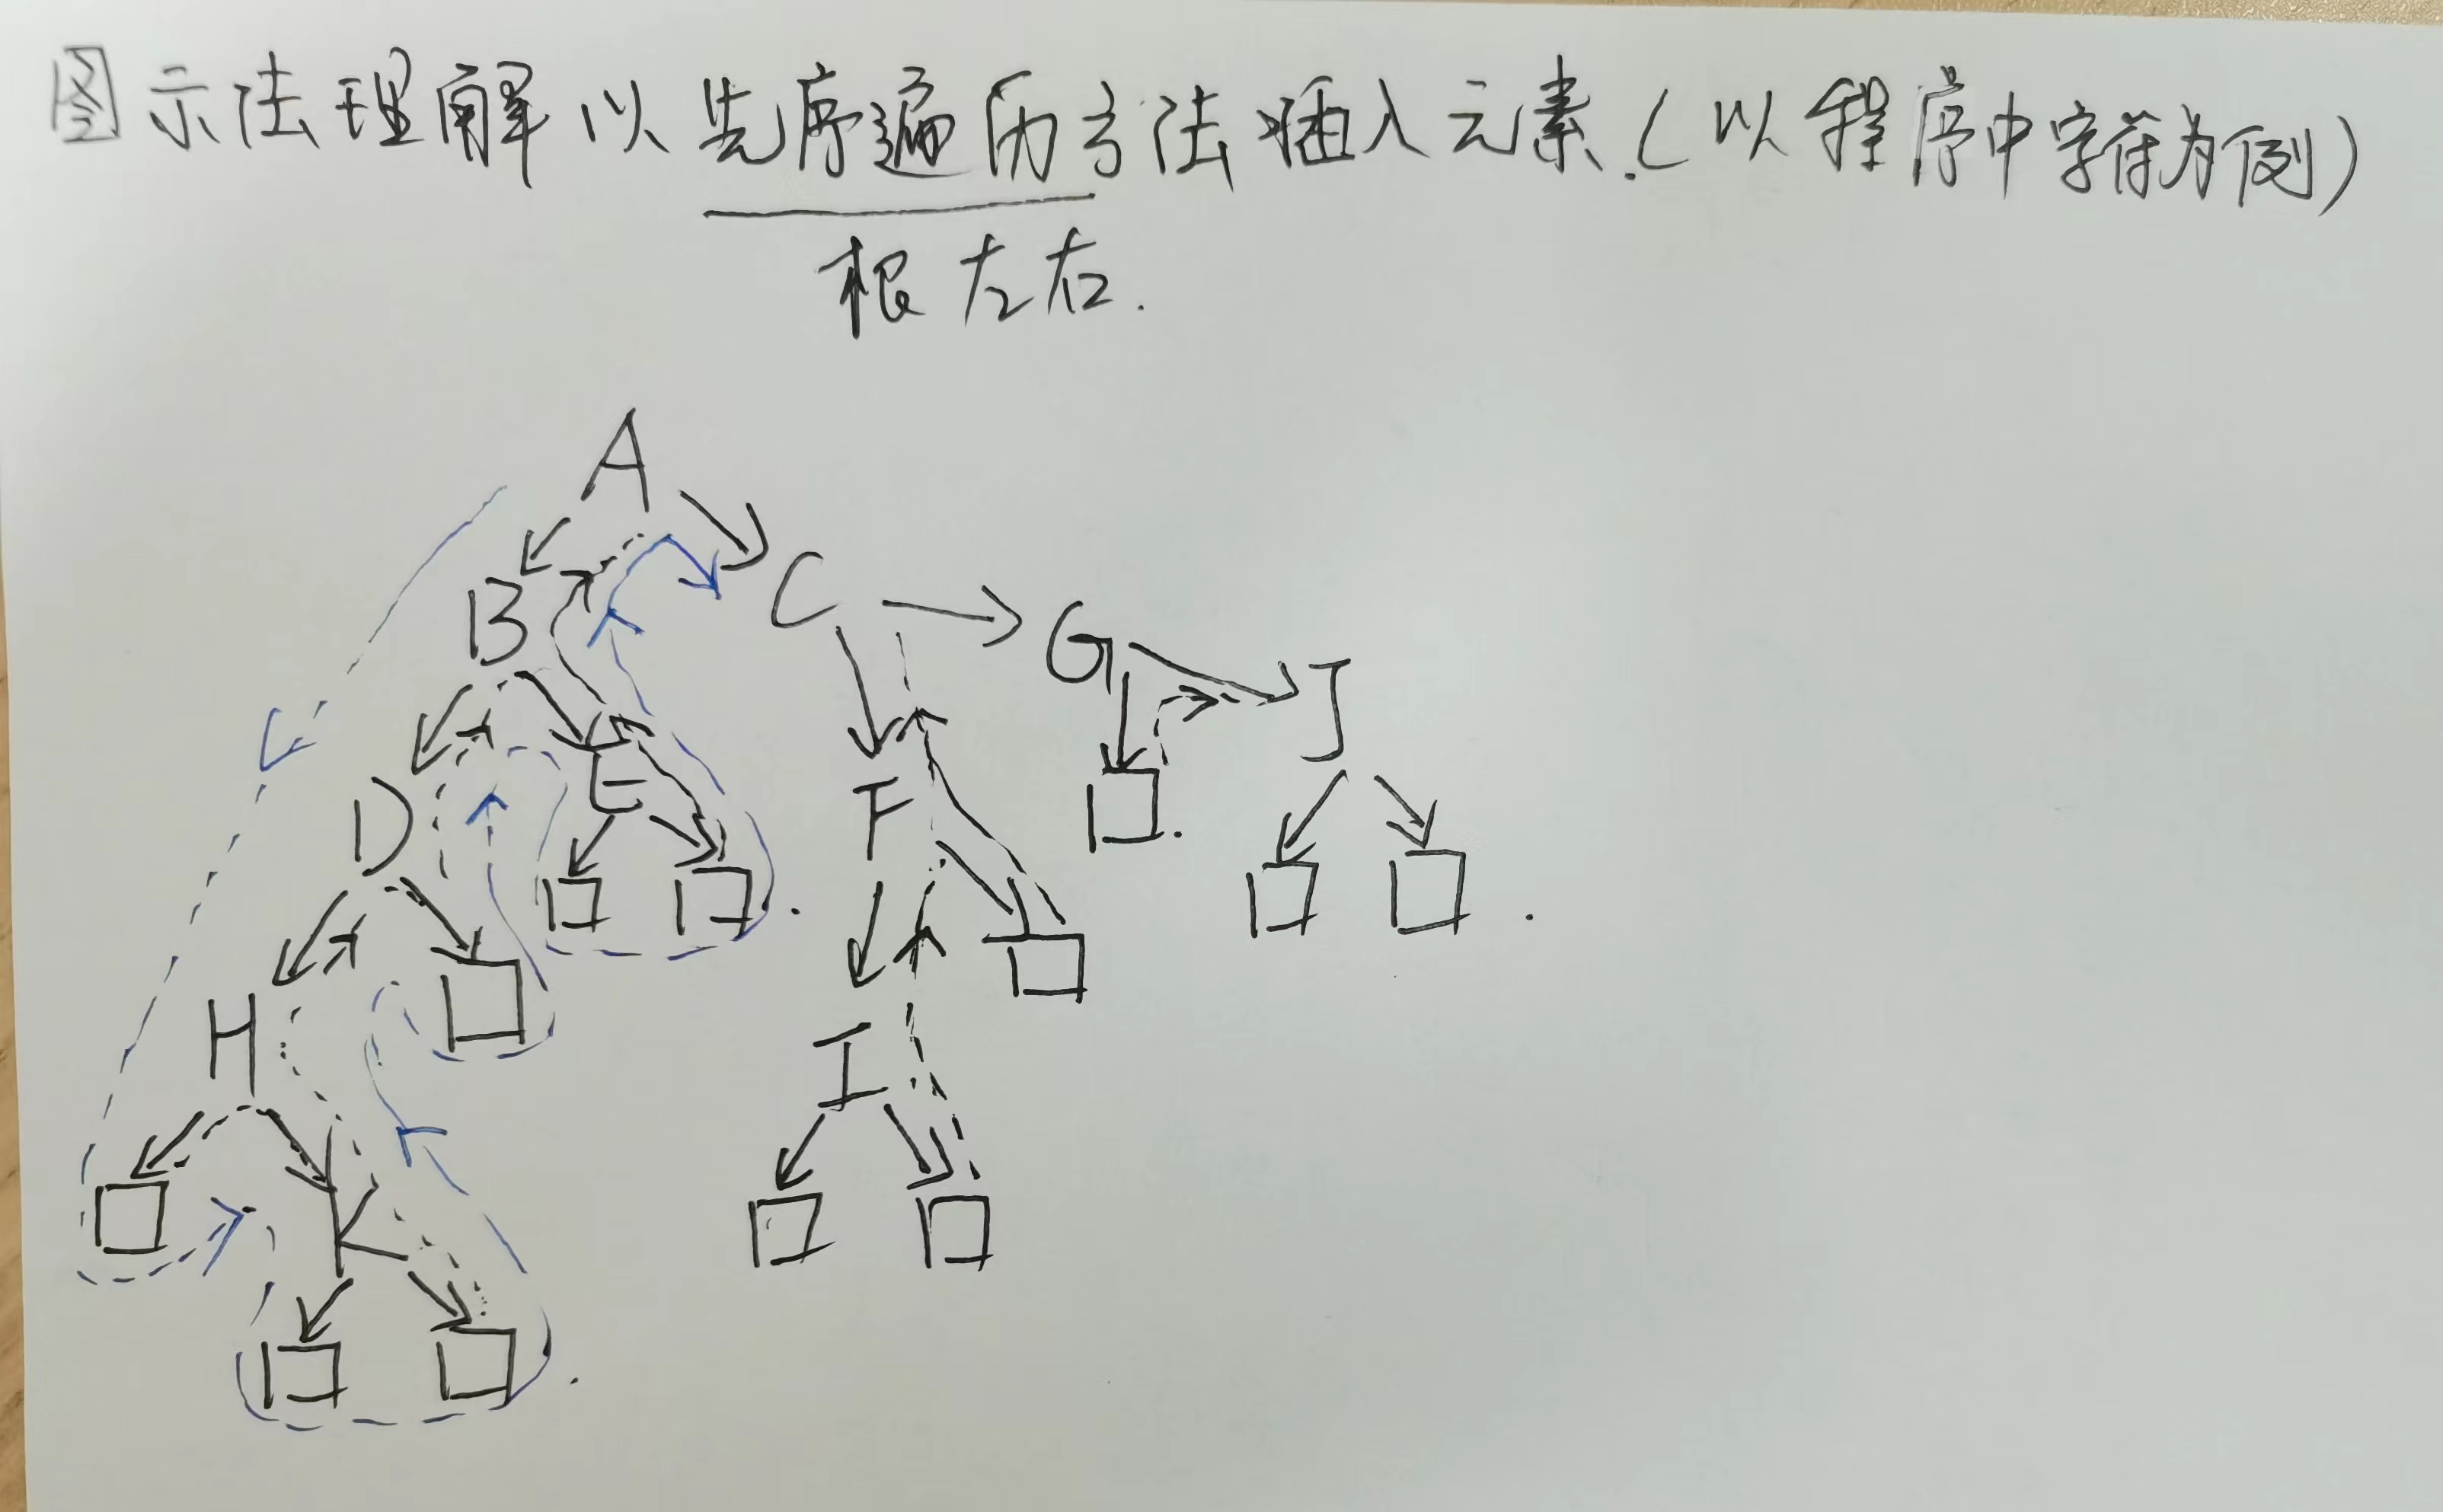 图示法理解以先序遍历方法插入元素.(以程序中字符为例)
根左右.
A
B
C
G
J
D
E
F
H
I
K